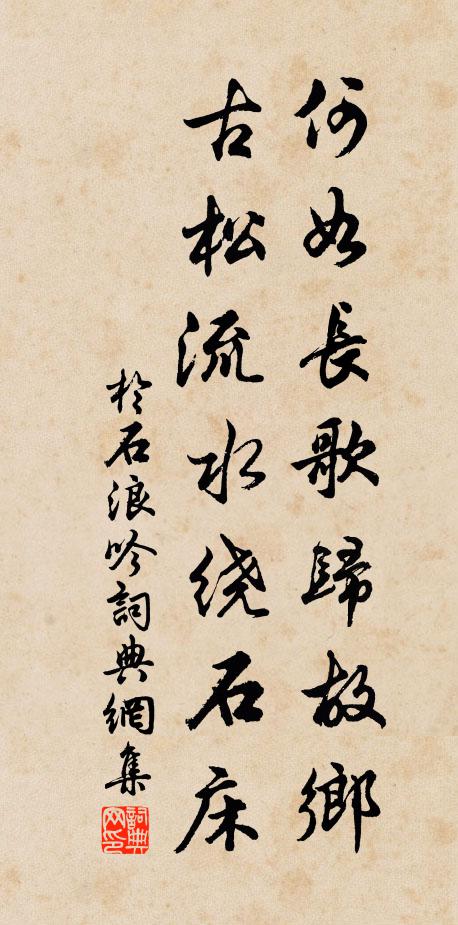 何如長歌歸故鄉
古松流水绕石床
於石浪吟詞典網集
詞典网印